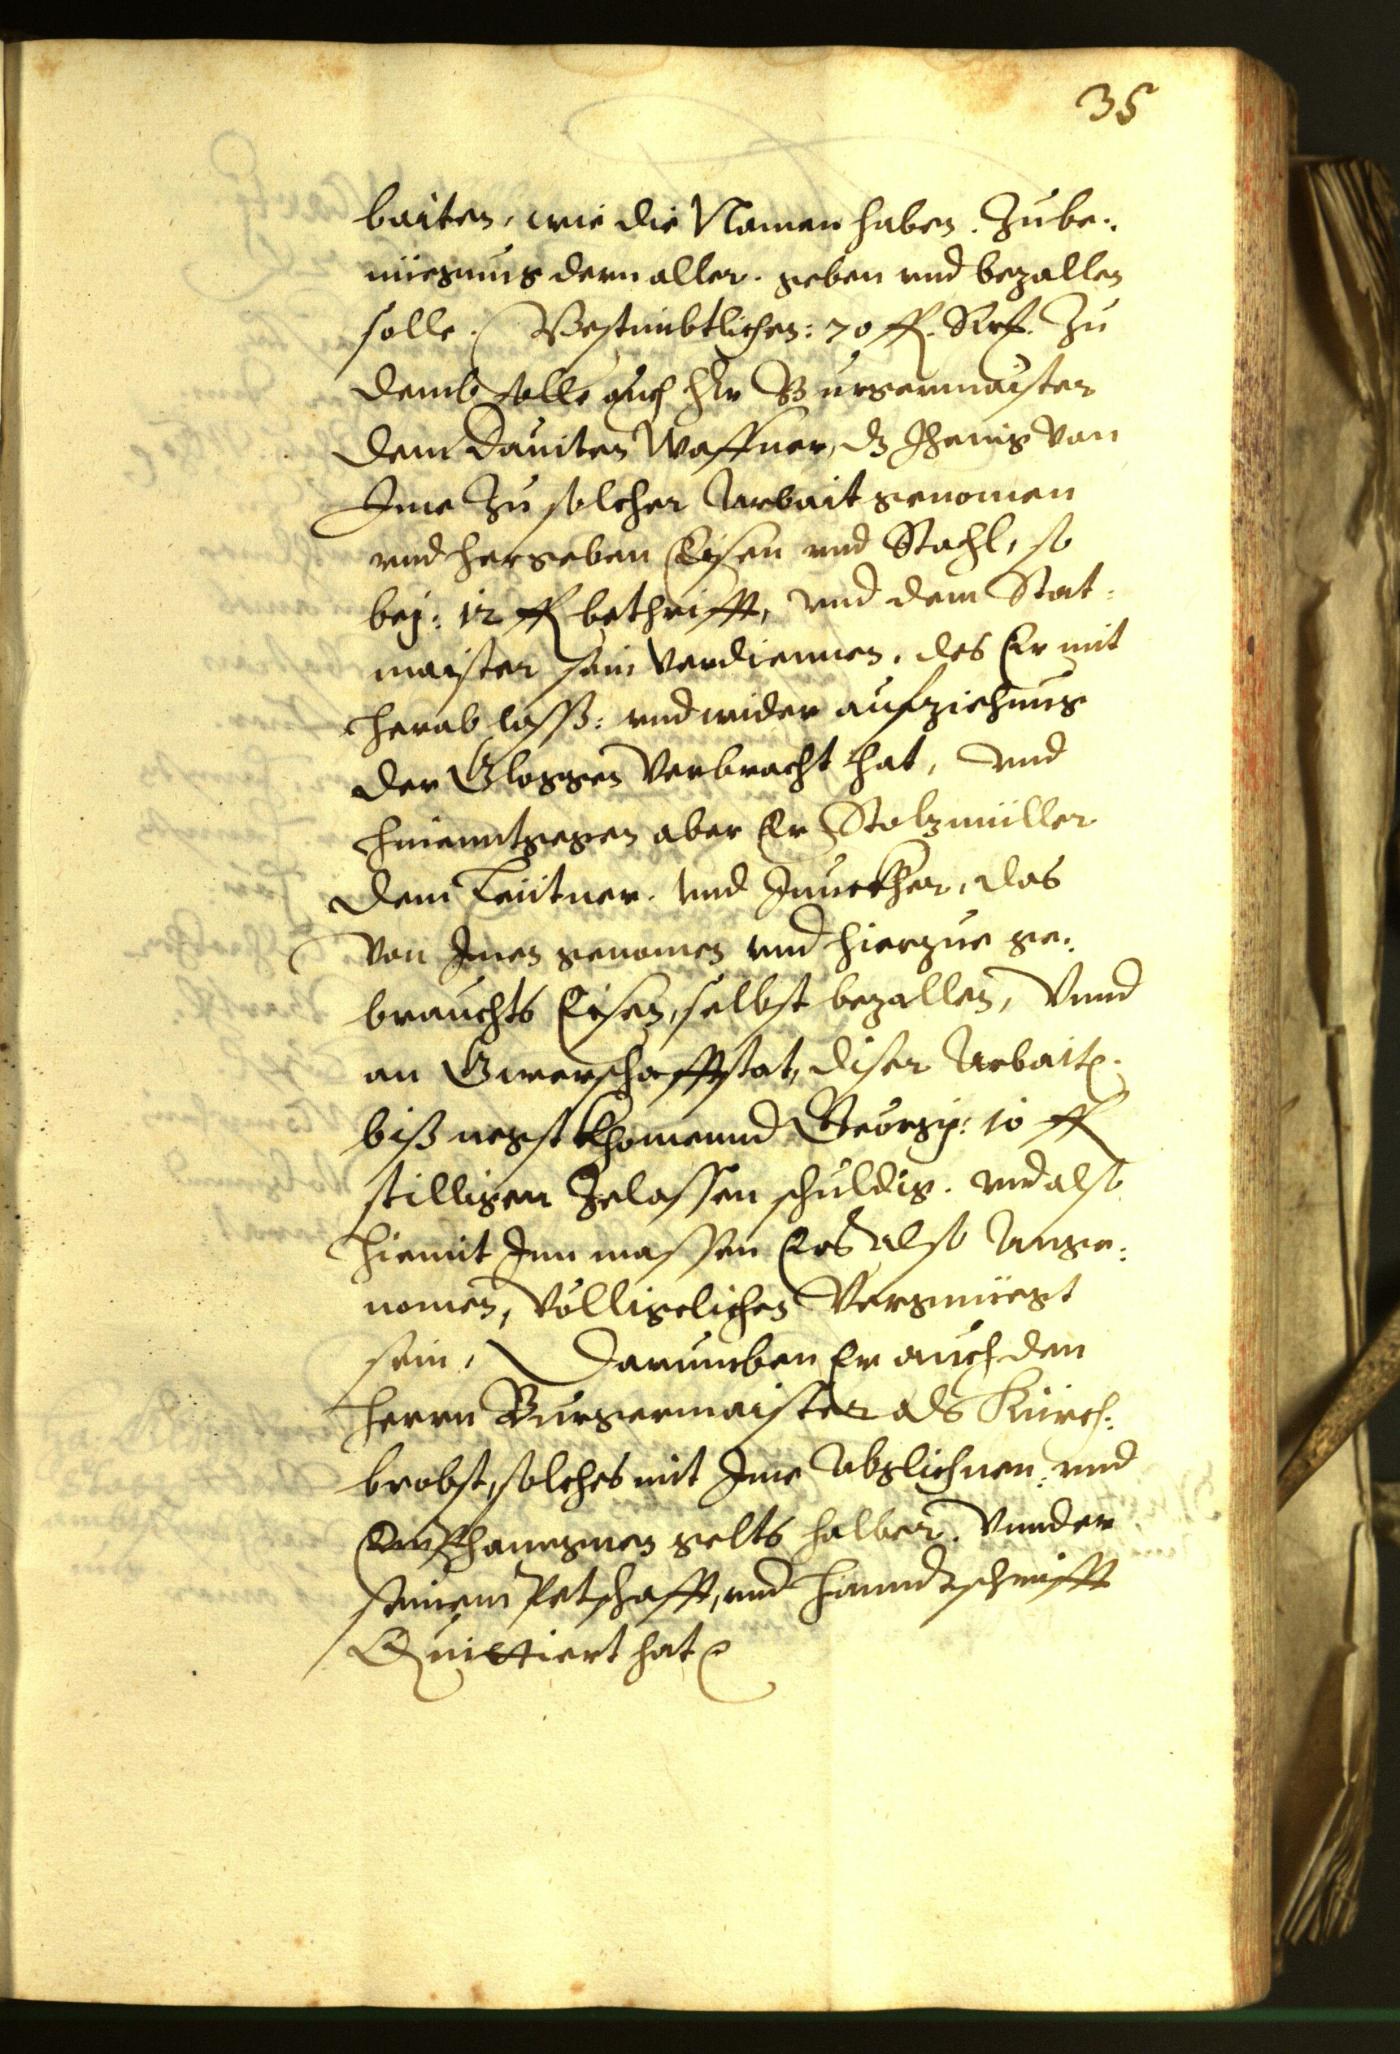 35
baiten, wie die Namen haben. Zube:
nüegung dern aller. geben vnd bezallen
solle. Bestimbtlichen: 70 fl. Zu
demb solle auch Hr Burgermaister
dem Dauiten Waffner, dz Jhenig von
Jme Zu solcher Arbait genomen
vnd hergeben Eisen vnd Stachl, so
bej: 12 fl betrifft, vnd dem Stat:
maister sein verdiennen, des Er mit
herab lass: vnd wider aufziehung
der Gloggen verbracht hat, vnd
hinentgegen aber Er Stolzmüller
dem Leütner. vnd Junckher, das
von Jnen genomen vnd hierzue ge:
brauchts Eisen, selbst bezallen, Vnnd
an Gwerschafft stat, diser Arbait.
biß negstkhomennd Georgij: 10 fl
stilligen Zelassen schuldig. vnd also
hiemit Jnn massen Ers also Ange:
nomen, völligelichen Vergnüegt
sein, Daruneben Er auch den
Herrn Burgermaister als Kürch:
brobst, solches mit Jme Abglichnen: vnd
Emphangnen gelts halber. Vnnder
seinem Petschafft, vnd Hanndtschrifft
Quittiert hat